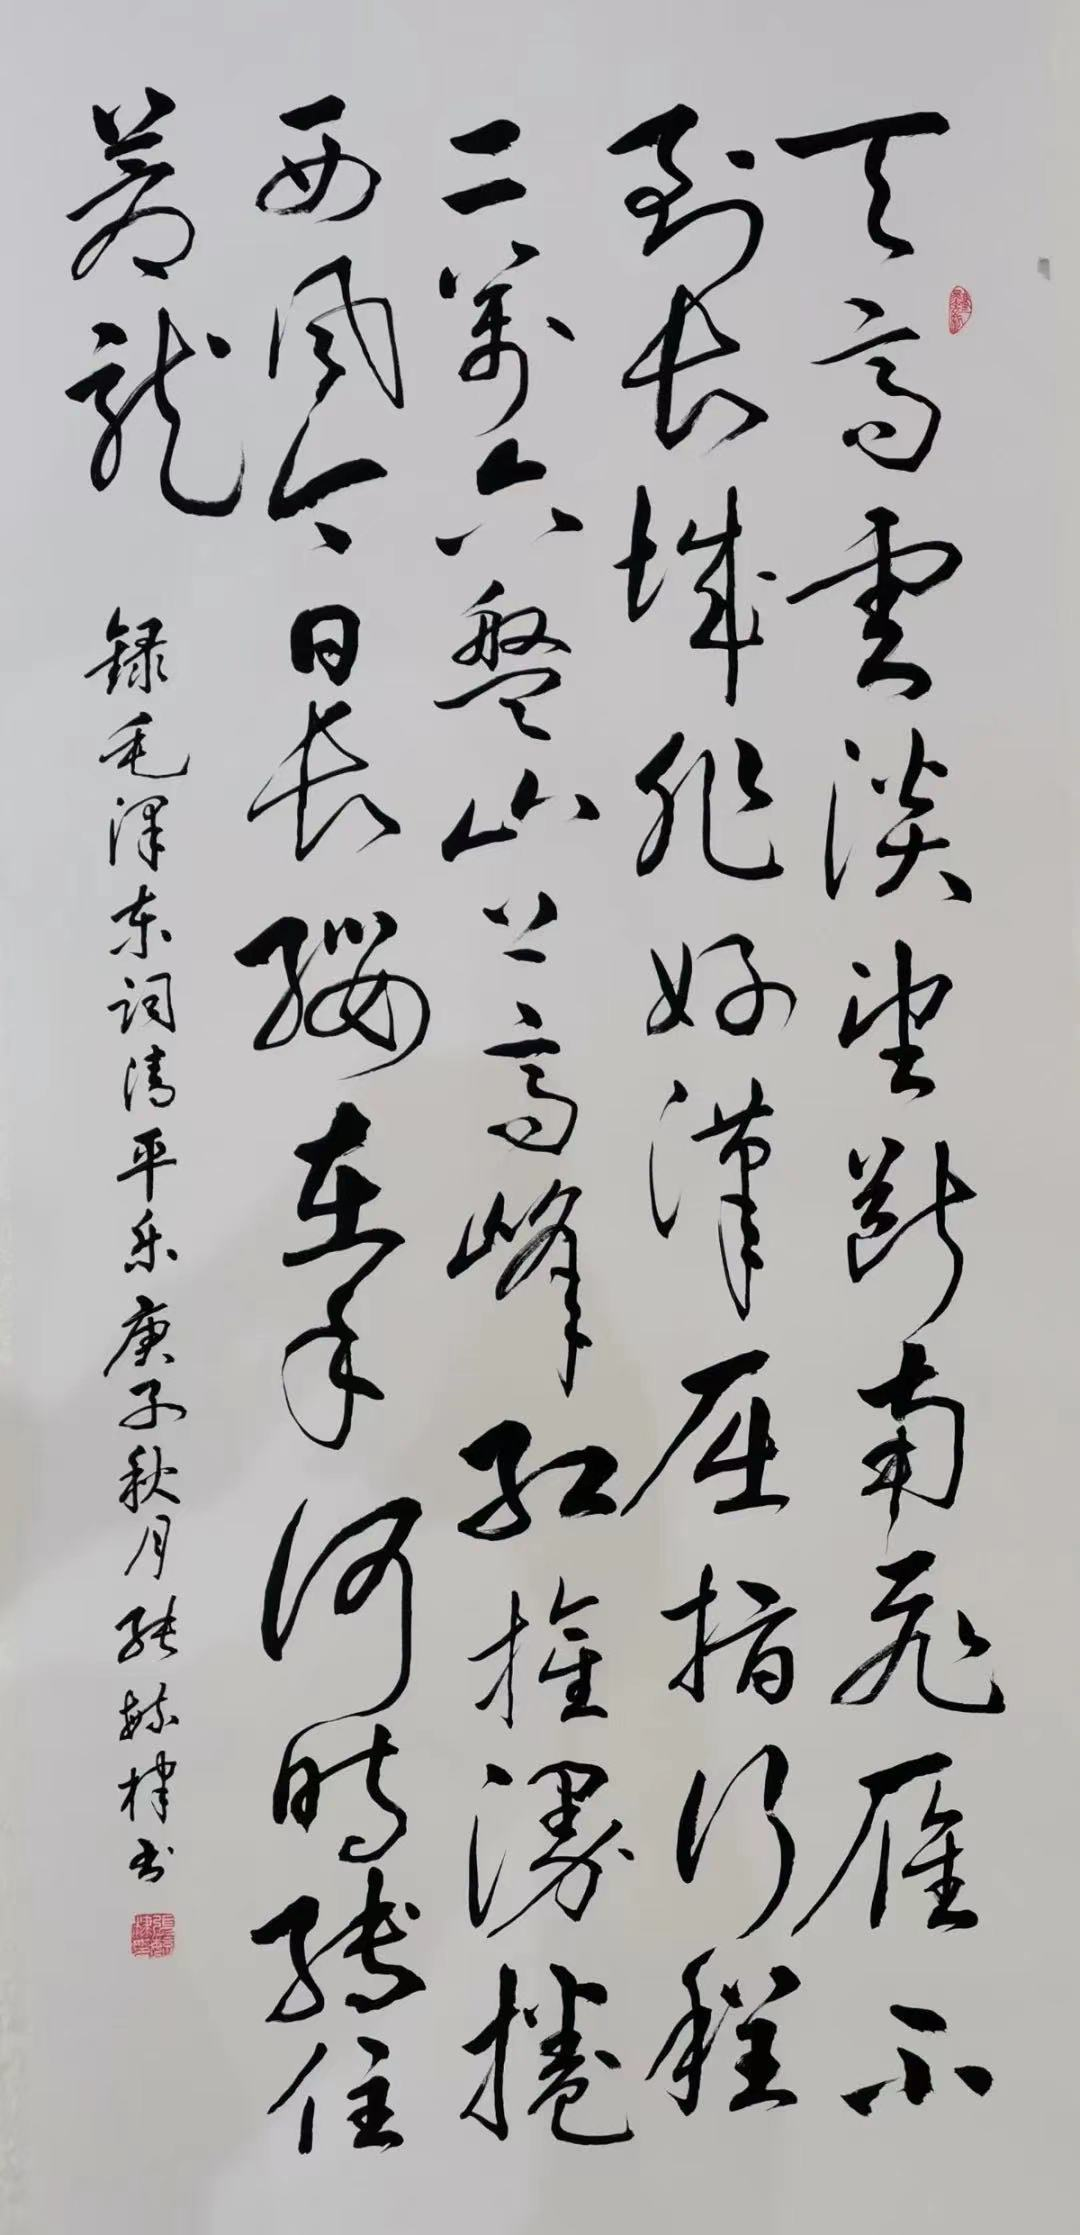 天高雲淡望断南飛雁不
到长城非好漢屈指行程
二萬六盤山上高峰红旗漫捲
西风今日长缨在手何时缚住
蒼龍
録毛泽东词清平乐庚子秋月张毓棣书